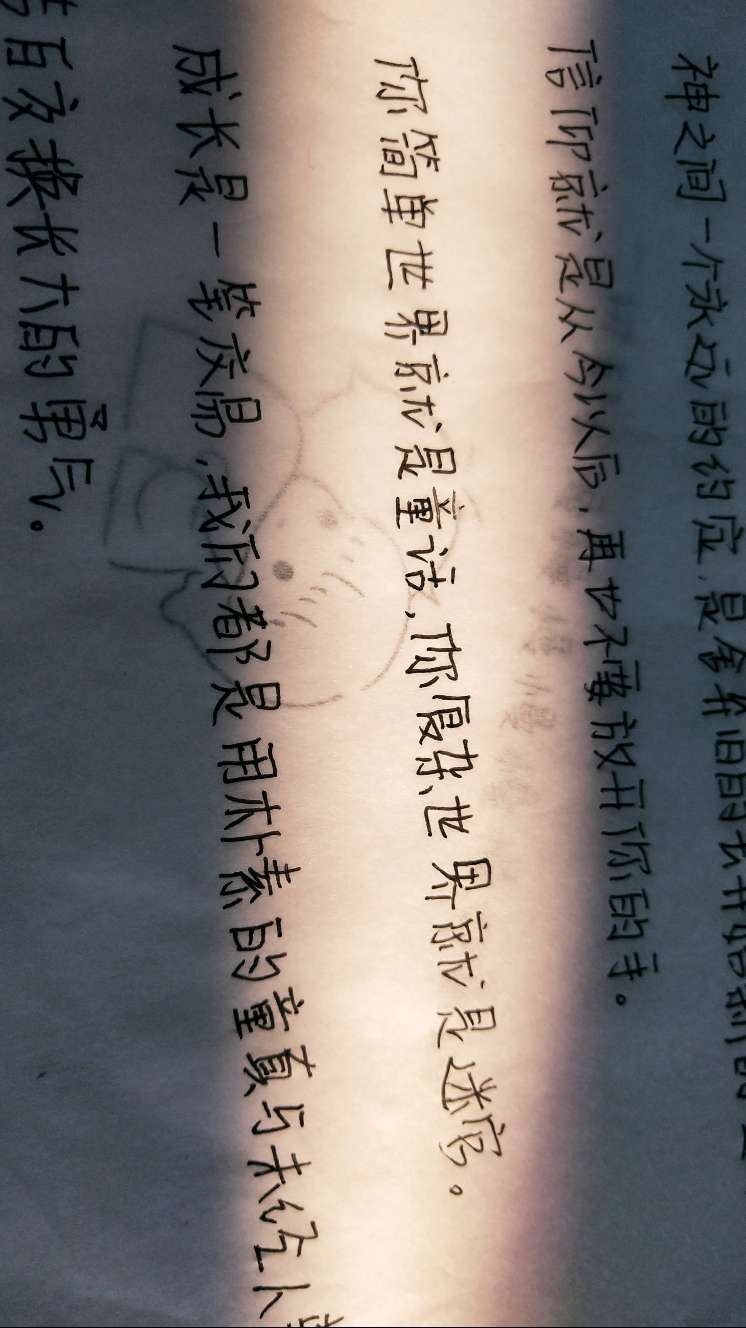 神之间一个永远的约定,是舍弃旧的去开始新的
信仰就是从今以后,再也不要放开你的手。
你简单世界就是童话,你复杂世界就是迷宫。
成长是一笔交易,我们都是用朴素的童真与未经人
百岁换长大的勇气。